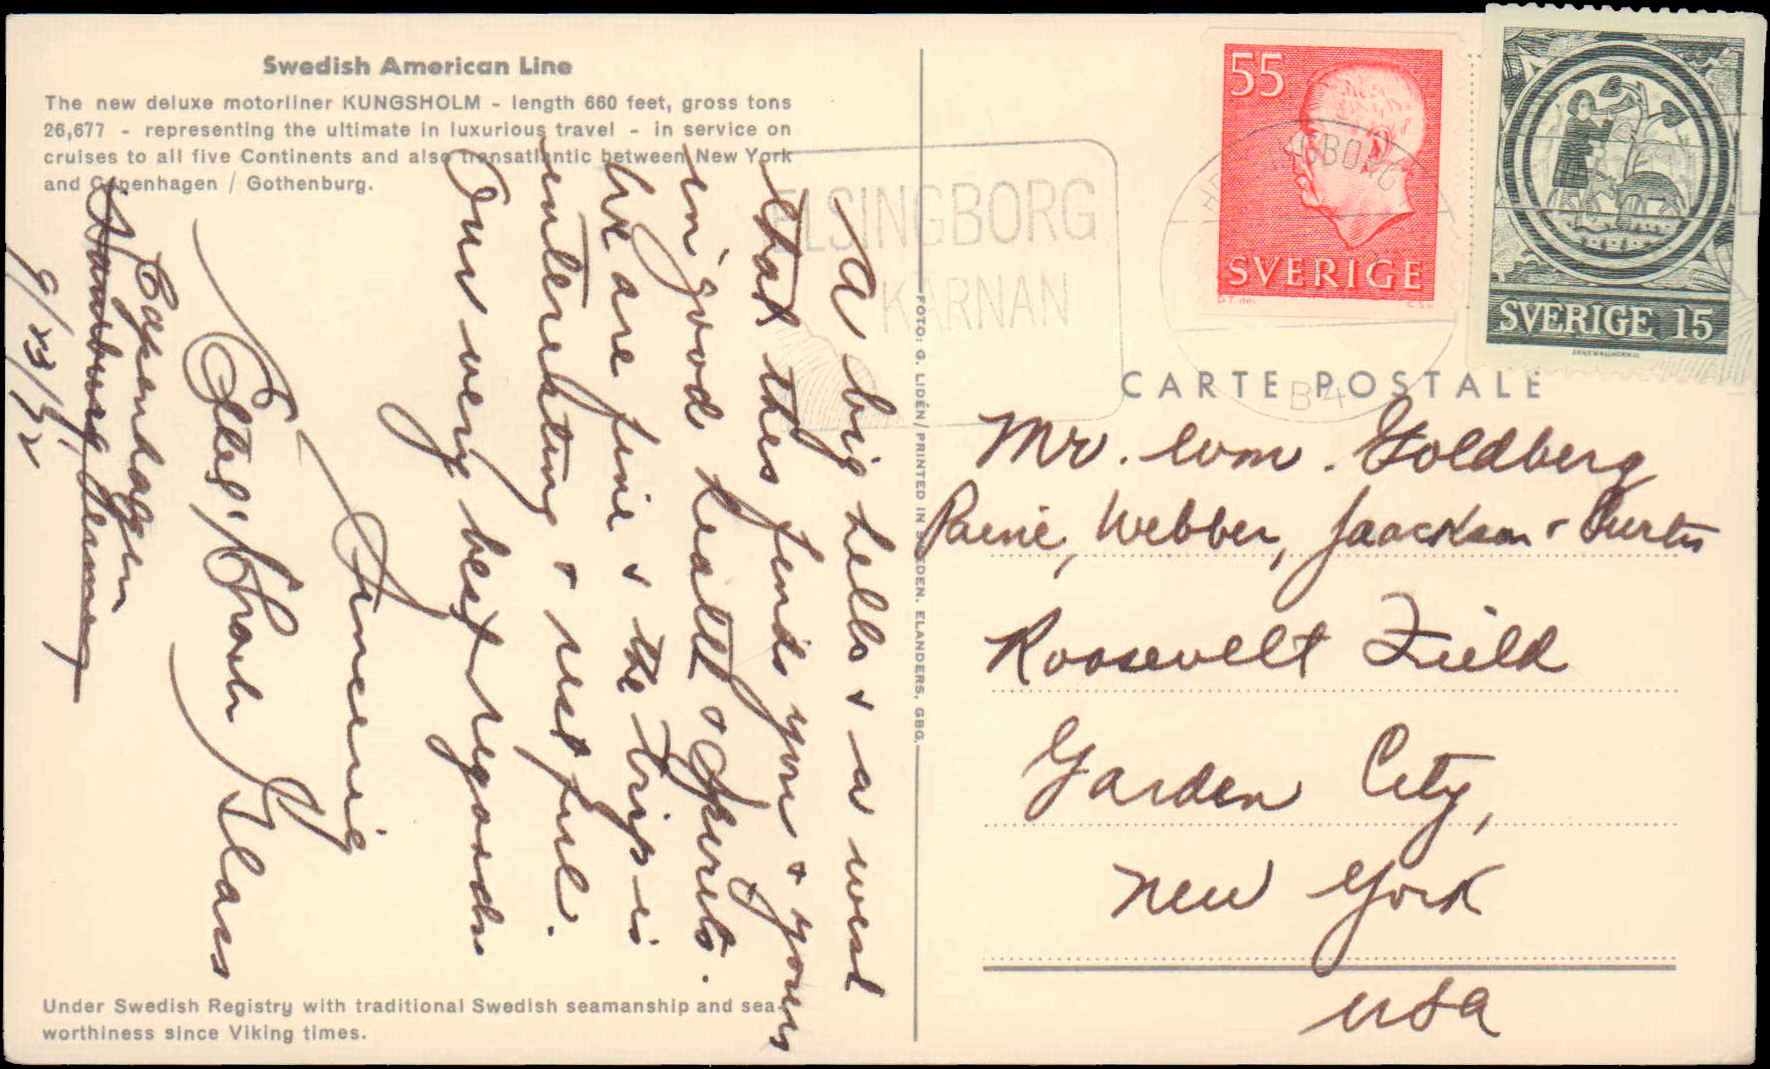 Swedish American Line
The new deluxe motorliner KUNGSHOLM - length 660 feet, gross tons
26,677 - representing the ultimate in luxurious travel - in service on
cruises to all five Continents and also transatlantic between New York
and Copenhagen / Gothenburg.
Copenhaggen
Hamburg, Germany
9/23/72
A big hello & a wish
that this finds you & yours
in good health & spirits.
We are fine & the trip is
interesting & restful.
Our very best regards
Sincerely
Ethel, Charles Glass
Under Swedish Registry with traditional Swedish seamanship and sea-
worthiness since Viking times.
FOTO: G. LIDÉN / PRINTED IN SWEDEN. ELANDERS, GBG.
ELSINGBORG
KÄRNAN
55
SVERIGE
HELSINGBORG
B4
SVERIGE 15
CARTE POSTALE
Mr. Wm. Goldberg
Paine, Webber, Jaackson & Curtis
Roosevelt Field
Garden City,
New York
USA